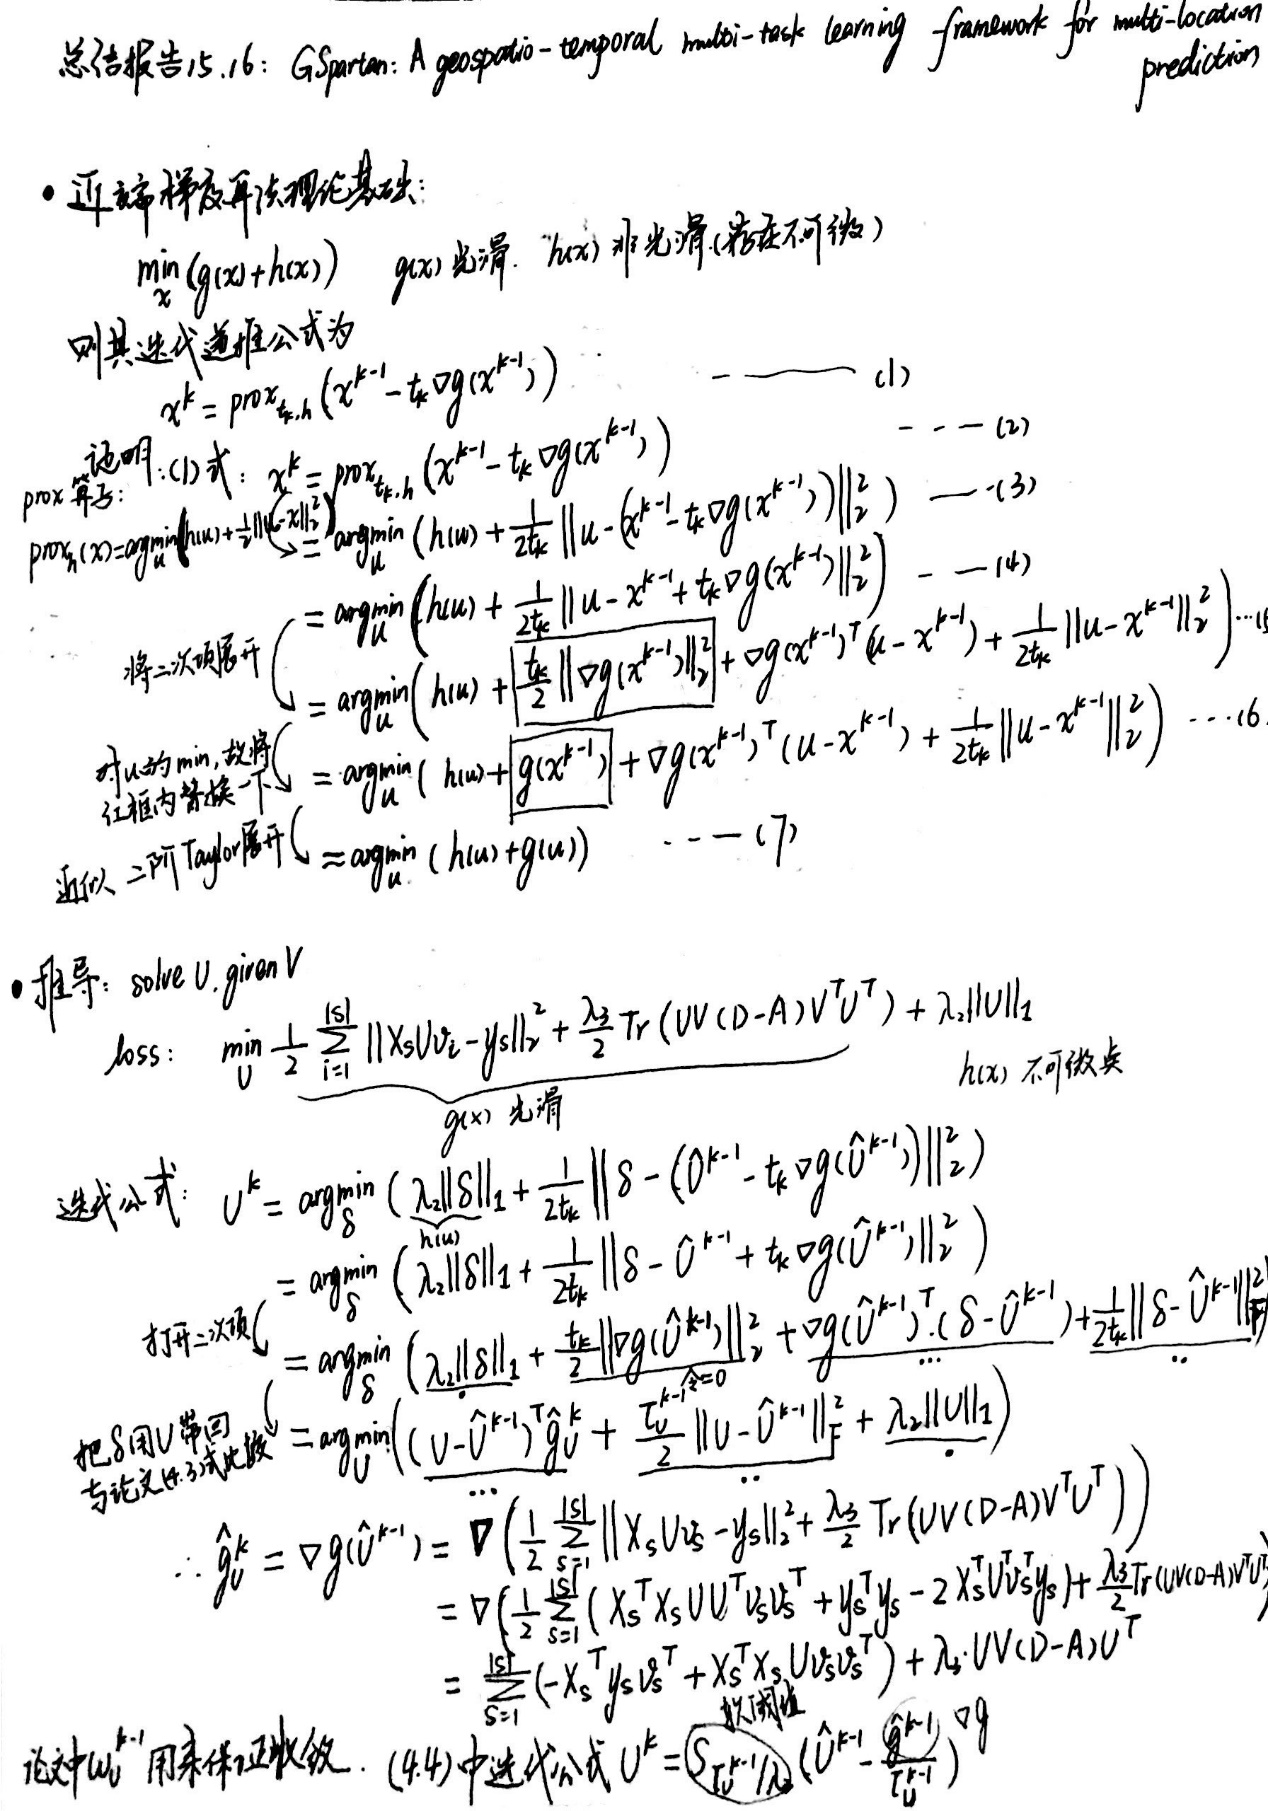 总结报告15.16: GSpartan: A geospatio-temporal multi-task learning framework for multi-location
prediction
• 近端梯度算法理论基础:
min_x (g(x)+h(x))   g(x) 光滑. h(x) 非光滑.(存在不可微)
则其迭代递推公式为
x^k = prox_{t_k,h} (x^{k-1} - t_k ∇g(x^{k-1})) —— (1)
证明:(1)式: x^k = prox_{t_k,h} (x^{k-1} - t_k ∇g(x^{k-1})) --- (2)
prox算子:
prox_h(x)=argmin_u (h(u)+1/2||u-x||_2^2) = argmin_u (h(u) + 1/(2t_k) ||u-(x^{k-1}-t_k∇g(x^{k-1}))||_2^2) —-(3)
= argmin_u (h(u) + 1/(2t_k) ||u-x^{k-1}+t_k∇g(x^{k-1})||_2^2) - —(4)
将二次项展开 = argmin_u (h(u) + t_k/2 ||∇g(x^{k-1})||_2^2 + ∇g(x^{k-1})^T (u-x^{k-1}) + 1/(2t_k) ||u-x^{k-1}||_2^2) ...(5
对u的min,故将
红框内替换一下 = argmin_u (h(u)+g(x^{k-1}) + ∇g(x^{k-1})^T (u-x^{k-1}) + 1/(2t_k) ||u-x^{k-1}||_2^2) ---(6
近似 二阶Taylor展开 ≈ argmin_u (h(u)+g(u)) --—(7)
• 推导: solve U, given V
loss: min_U 1/2 Σ_{i=1}^{|S|} ||X_s U v_i - y_s||_2^2 + λ_3/2 Tr(UV(D-A)V^T U^T) + λ_2||U||_1
g(x) 光滑   h(x) 不可微点
迭代公式: U^k = argmin_δ (λ_2||δ||_1 + 1/(2t_k) ||δ-(Û^{k-1}-t_k∇g(Û^{k-1}))||_2^2)
h(u)
= argmin_δ (λ_2||δ||_1 + 1/(2t_k) ||δ-Û^{k-1}+t_k∇g(Û^{k-1})||_2^2)
打开二次项 = argmin_δ (λ_2||δ||_1 + t_k/2 ||∇g(Û^{k-1})||_2^2 + ∇g(Û^{k-1})^T·(δ-Û^{k-1}) + 1/(2t_k) ||δ-Û^{k-1}||_F^2)
≙=0
把δ用U带回
与论文(4.3)式比较 = argmin_U ((U-Û^{k-1})^T ĝ_U^k + τ_U^{k-1}/2 ||U-Û^{k-1}||_F^2 + λ_2||U||_1)
∴ ĝ_U^k = ∇g(Û^{k-1}) = ∇(1/2 Σ_{s=1}^{|S|} ||X_s U v_s - y_s||_2^2 + λ_3/2 Tr(UV(D-A)V^T U^T))
= ∇(1/2 Σ_{s=1}^{|S|} (X_s^T X_s U U^T v_s v_s^T + y_s^T y_s - 2X_s^T U^T v_s^T y_s) + λ_3/2 Tr(UV(D-A)V^T U^T)
= Σ_{s=1}^{|S|} (-X_s^T y_s v_s^T + X_s^T X_s U v_s v_s^T) + λ_3·UV(D-A)U^T
软阈值
论文中ω_U^{k-1} 用来保证收敛. (4.4)中迭代公式 U^k = S_{τ_U^{k-1}/λ_2} (Û^{k-1} - ĝ^{k-1}/τ_U^{k-1}) ∇g